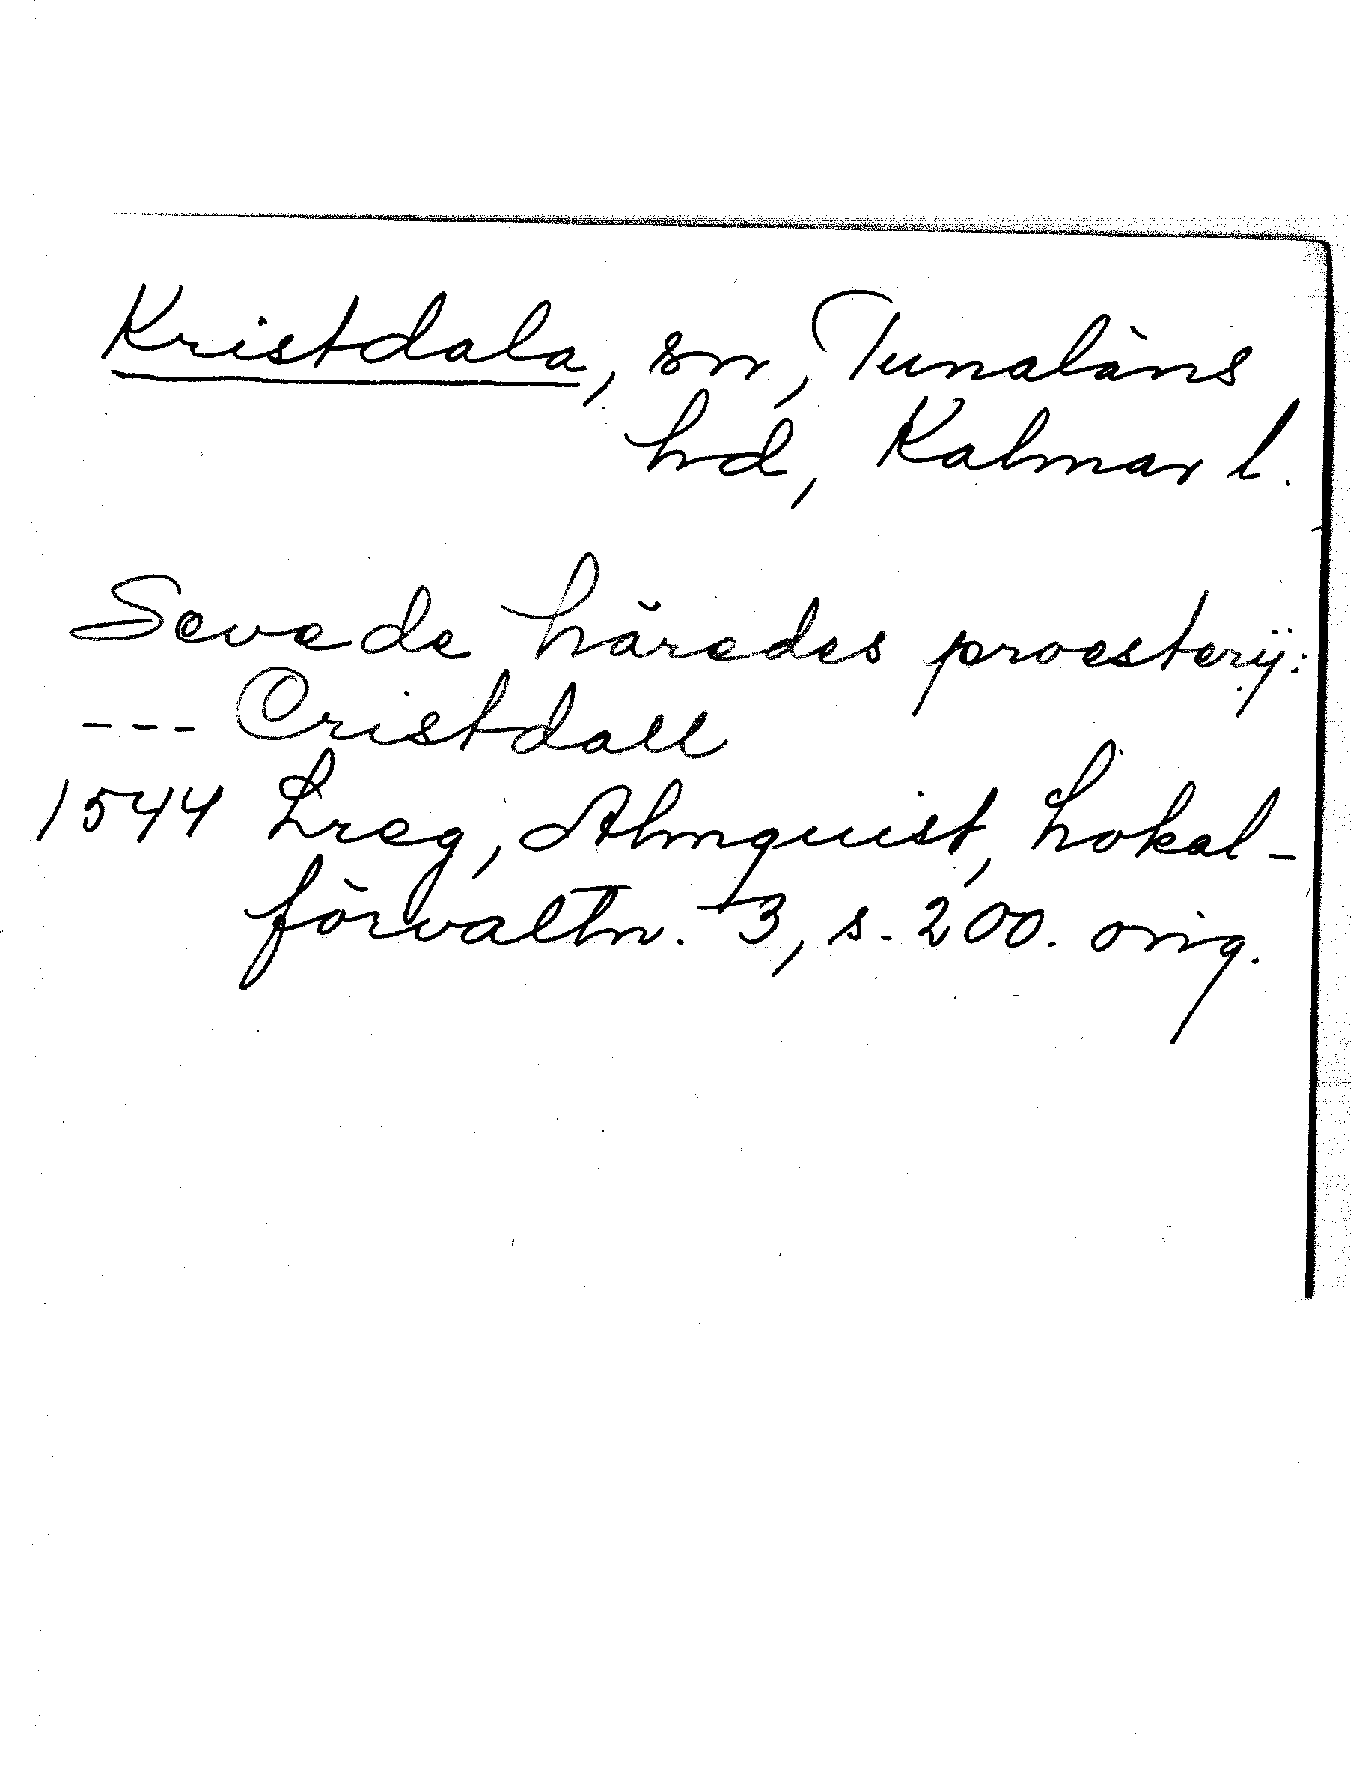 Kristdala, sn, Tunaläns
hd, Kalmar l.
Sevede häredes proesterij:
--- Cristdall
1544 Lreg, Almquist, Lokal-
förvaltn. 3, s. 200. orig.